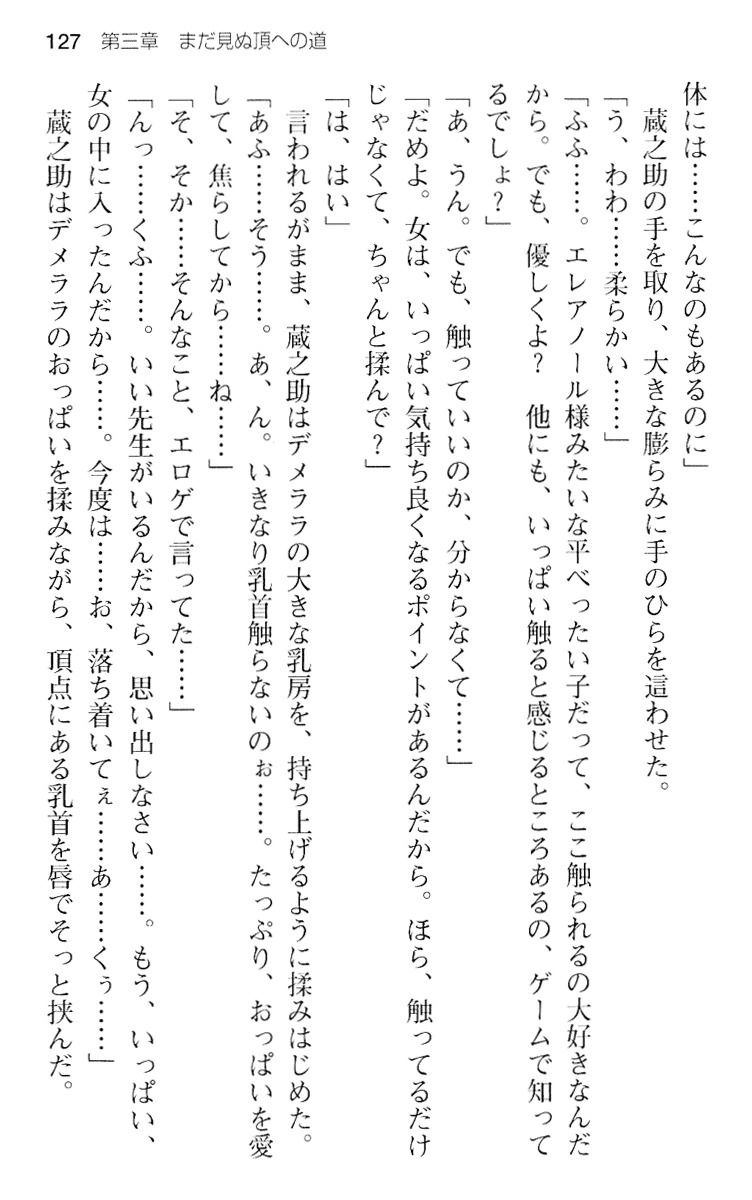 127 第三章 まだ見ぬ頂への道
体には……こんなのもあるのに」
蔵之助の手を取り、大きな膨らみに手のひらを這わせた。
「う、わわ……柔らかい……」
「ふふ……。エレアノール様みたいな平べったい子だって、ここ触られるの大好きなんだ
から。でも、優しくよ？　他にも、いっぱい触ると感じるところあるの、ゲームで知って
るでしょ？」
「あ、うん。でも、触っていいのか、分からなくて……」
「だめよ。女は、いっぱい気持ち良くなるポイントがあるんだから。ほら、触ってるだけ
じゃなくて、ちゃんと揉んで？」
「は、はい」
言われるがまま、蔵之助はデメララの大きな乳房を、持ち上げるように揉みはじめた。
「あふ……そう……。あ、ん。いきなり乳首触らないのぉ……。たっぷり、おっぱいを愛
して、焦らしてから……ね……」
「そ、そか……そんなこと、エロゲで言ってた……」
「んっ……くふ……。いい先生がいるんだから、思い出しなさい……。もう、いっぱい、
女の中に入ったんだから……。今度は……お、落ち着いてぇ……あ……くぅ……」
蔵之助はデメララのおっぱいを揉みながら、頂点にある乳首を唇でそっと挟んだ。